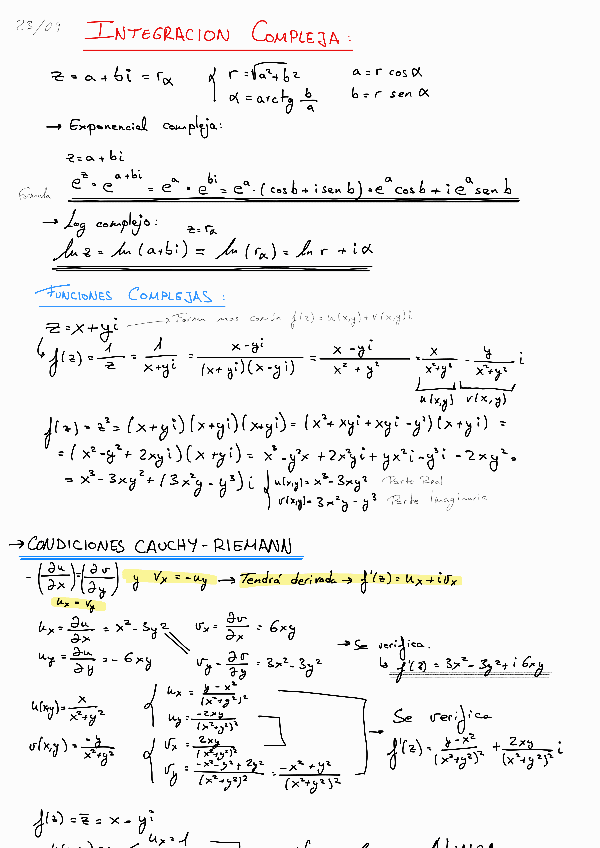 23/09
INTEGRACION COMPLEJA:
z = a + bi = r_α { r = √(a²+b²) a = r cos α
α = arctg b/a b = r sen α
→ Exponencial compleja:
z = a + bi
e^z = e^(a+bi) = e^a · e^(bi) = e^a · (cos b + i sen b) = e^a cos b + i e^a sen b
→ Log complejo: z = r_α
ln z = ln (a+bi) = ln (r_α) = ln r + iα
FUNCIONES COMPLEJAS:
z = x + yi → Forma mas común f(z) = u(x,y) + v(x,y)i
↳ f(z) = 1/z = 1/(x+yi) = (x-yi)/((x+yi)(x-yi)) = (x-yi)/(x²+y²) = x/(x²+y²) - y/(x²+y²) i
u(x,y) v(x,y)
f(z) = z³ = (x+yi)(x+yi)(x+yi) = (x²+xyi+xyi-y²)(x+yi) =
= (x²-y²+2xyi)(x+yi) = x³-y²x+2x²yi+yx²i-y³i-2xy² =
= x³-3xy²+(3x²y-y³)i { u(x,y) = x³-3xy² Parte Real
v(x,y) = 3x²y-y³ Parte Imaginaria
→ CONDICIONES CAUCHY-RIEMANN
- (∂u/∂x) = (∂v/∂y) y v_x = -u_y → Tendrá derivada → f'(z) = u_x + i v_x
u_x = v_y
u_x = ∂u/∂x = x²-3y² v_x = ∂v/∂x = 6xy
→ Se verifica.
u_y = ∂u/∂y = -6xy v_y = ∂v/∂y = 3x²-3y² ↳ f'(z) = 3x²-3y²+i6xy
u(x,y) = x/(x²+y²) { u_x = (y-x²)/(x²+y²)²
u_y = -2xy/(x²+y²)²
→ Se verifica
v(x,y) = -y/(x²+y²) { v_x = 2xy/(x²+y²)²
f'(z) = (y-x²)/(x²+y²)² + 2xy/(x²+y²)² i
v_y = (-x²-y²+2y²)/(x²+y²)² = (-x²+y²)/(x²+y²)²
f(z) = z̄ = x - yi
u_x = 1